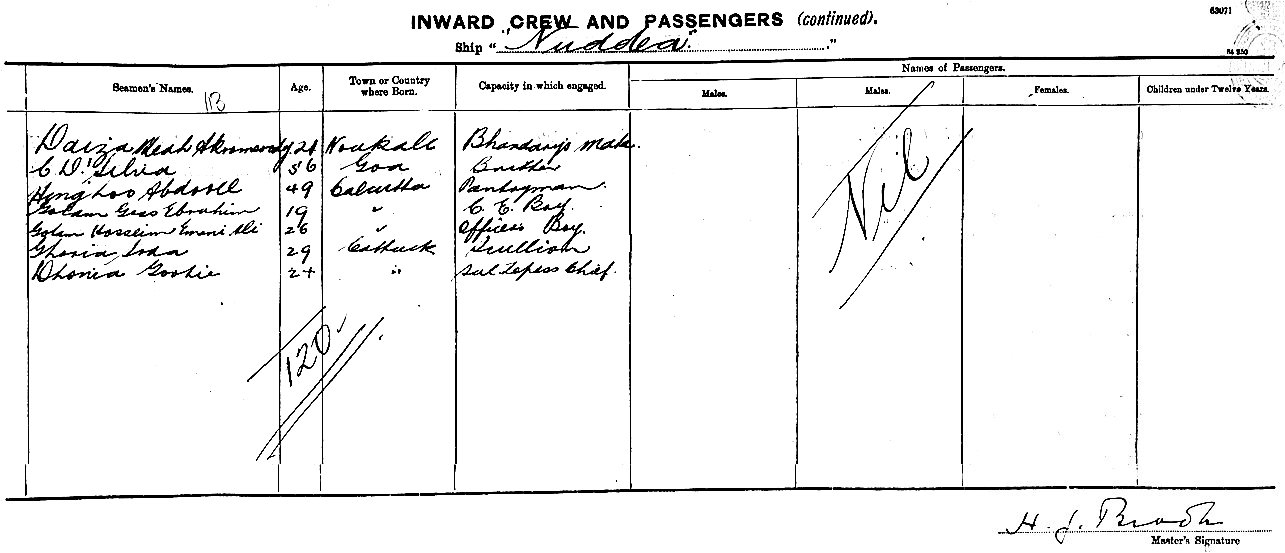 63071
INWARD CREW AND PASSENGERS (continued).
Ship "Nuddea."
54 250
Seamen's Names. Age. Town or Country where Born. Capacity in which engaged. Names of Passengers.
Males. Males. Females. Children under Twelve Years.
Daiza Meah Akromoody 21 Noukali Bhandary's Mate.
C D'Silva 56 Goa Butcher
Abdool 49 Calcutta Pantryman.
Golam Goss Ebrahim 19 " C. E. Boy.
Golam Hossein Emam Ali 26 " Officers Boy.
29 Cuttuck Scullion
Dhonia 24 " Topass Chief.
Nil
120
H. J. Brook
Master's Signature